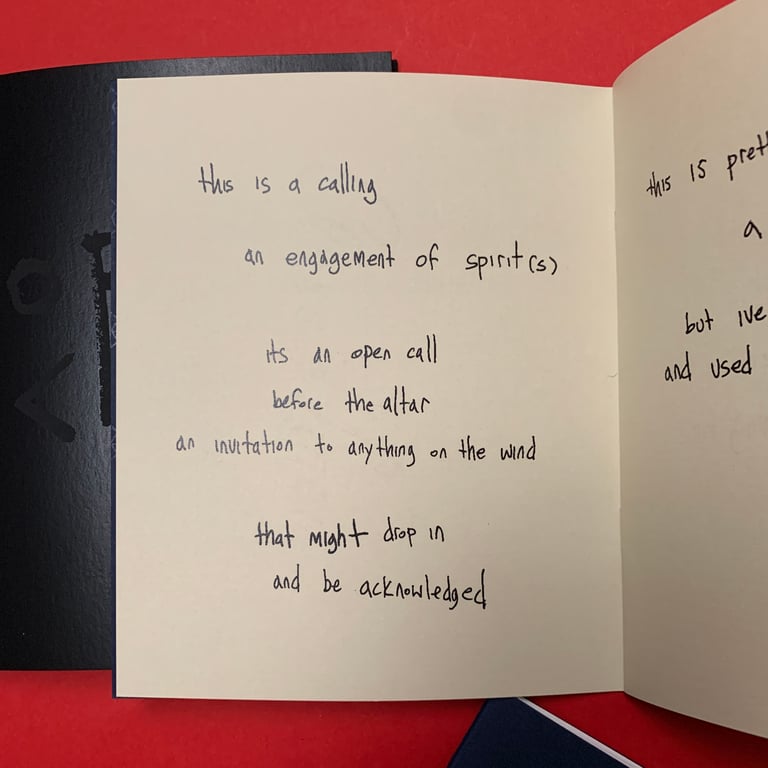 this is a calling
an engagement of spirit(s)
its an open call
before the altar
an invitation to anything on the wind
that might drop in
and be acknowledged
this is
a
but ive
and used